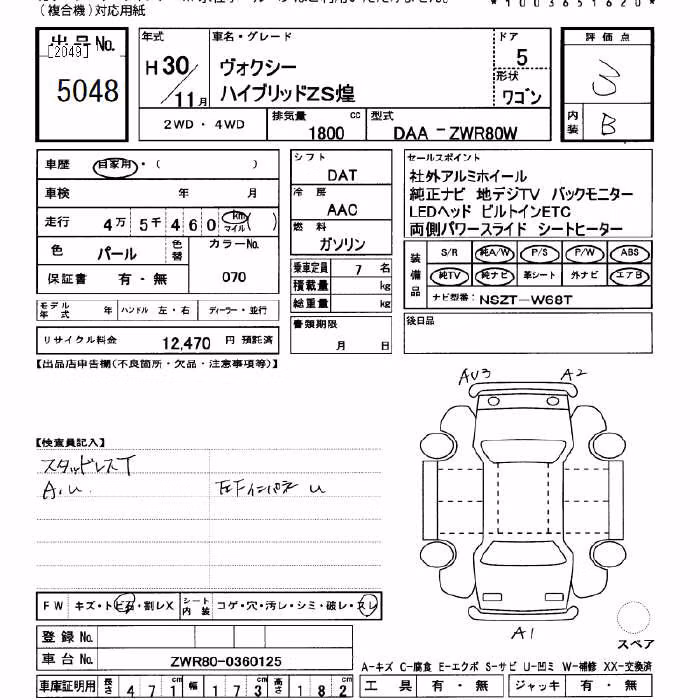 (複合機)対応用紙
*1003651620*
出品No.
[2049]
5048
年式
H30/11月
車名・グレード
ヴォクシー
ハイブリッドZS煌
ドア
5
形状
ワゴン
評価点
3
内装
B
2WD・4WD
排気量
1800 cc
型式
DAA-ZWR80W
車歴 自家用・( )
車検 年 月
走行 4万5千460 km マイル ( )
色 パール 色替
カラーNo.
070
保証書 有・無
モデル年式 年 ハンドル 左・右 ディーラー・並行
リサイクル料金 12,470 円 預託済
シフト
DAT
冷房
AAC
燃料
ガソリン
乗車定員 7 名
積載量 kg
総重量 kg
書類期限
月 日
セールスポイント
社外アルミホイール
純正ナビ 地デジTV バックモニター
LEDヘッド ビルトインETC
両側パワースライド シートヒーター
装備品
S/R 純A/W P/S P/W ABS
純TV 純ナビ 革シート 外ナビ エアB
ナビ型番: NSZT-W68T
後日品
【出品店申告欄(不良箇所・欠品・注意事項等)】
【検査員記入】
スタッドレスT
A.U.
AU3 A2
A1
スペア
FW キズ・トビ石・割レX
シート内装 コゲ・穴・汚レ・シミ・破レ・スレ
登録No.
車台No. ZWR80-0360125
車庫証明用 長さ 471cm 幅 173cm 高さ 182cm
A-キズ C-腐食 E-エクボ S-サビ U-凹ミ W-補修 XX-交換済
工具 有・無 ジャッキ 有・無